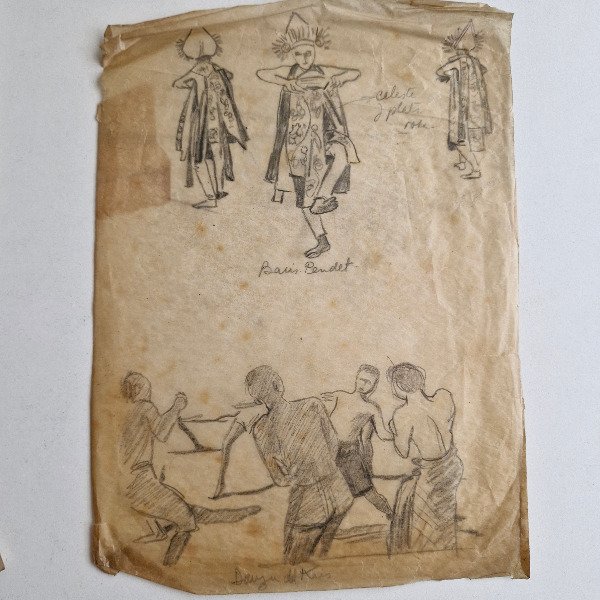 celeste
y plata
rosa.
Baris Pendet.
Danza del Kris